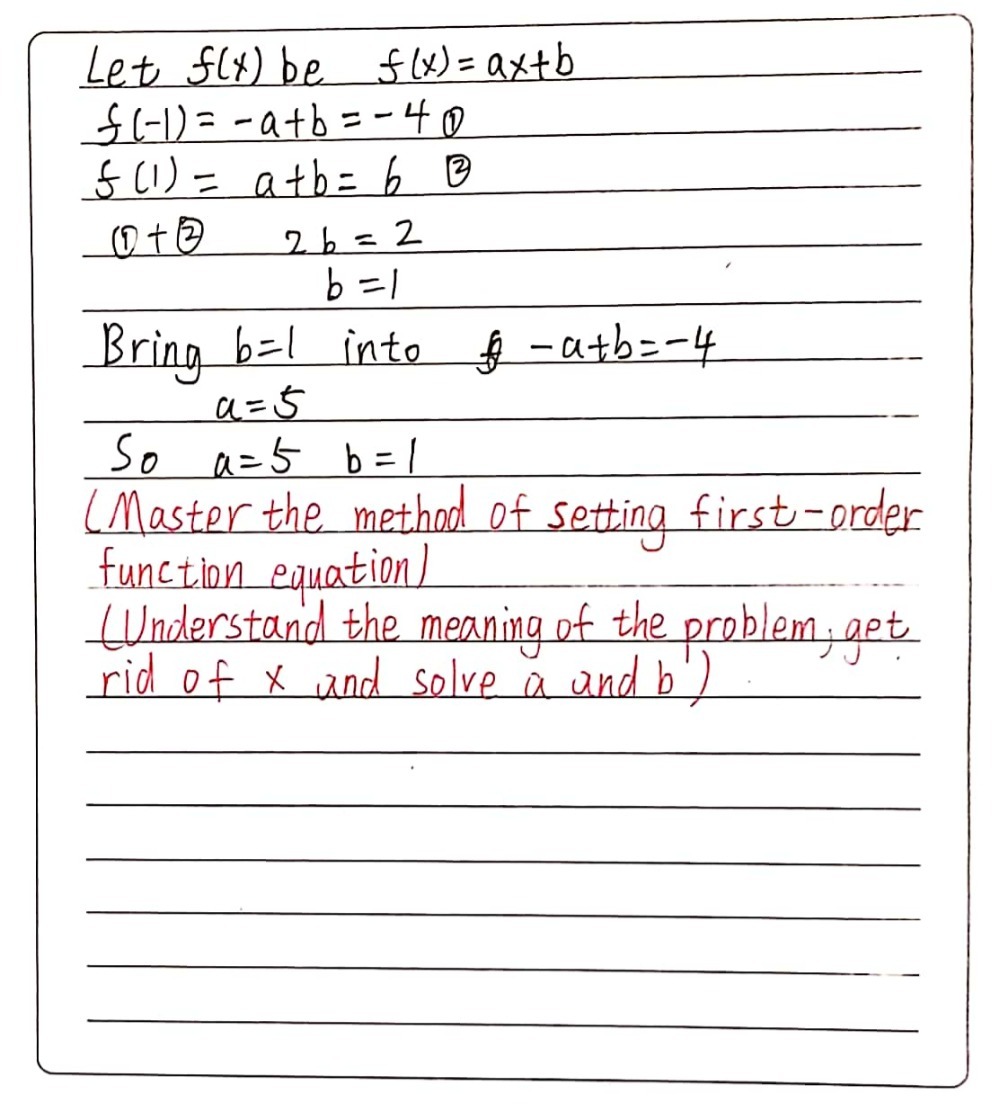 Let f(x) be f(x) = ax+b
f(-1) = -a+b = -4 ①
f(1) = a+b = 6 ②
①+② 2b = 2
b=1
Bring b=1 into -a+b=-4
a=5
So a=5 b=1
(Master the method of setting first-order
function equation)
(Understand the meaning of the problem, get
rid of x and solve a and b)